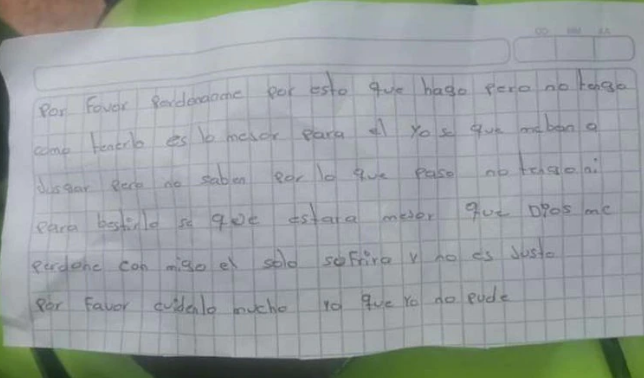 DD MM AA
Por Favor Perdonanme por esto que hago pero no tengo
como tenerlo es lo mejor para el yo se que me ban a
Jusgar pero no saben por lo que paso no tengo ni
para bestirlo se que estara mejor que Dios me
perdone con migo el solo sofrira y no es Justo
por favor cuidenlo mucho ya que yo no pude